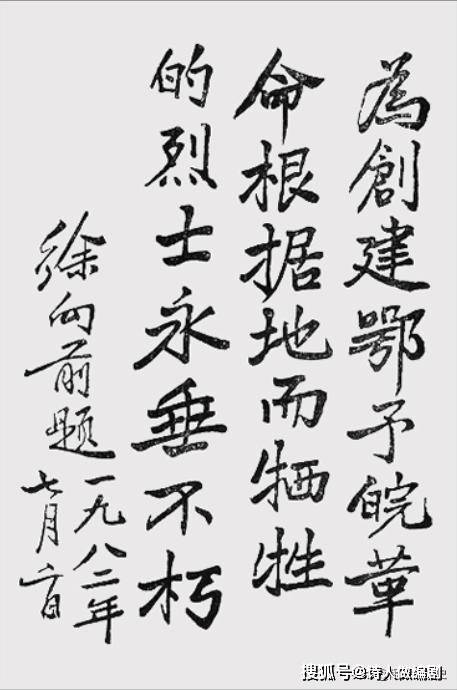 為創建鄂予皖革
命根据地而牺牲
的烈士永垂不朽
徐向前题
一九八二年
七月
搜狐号@诗人做编剧